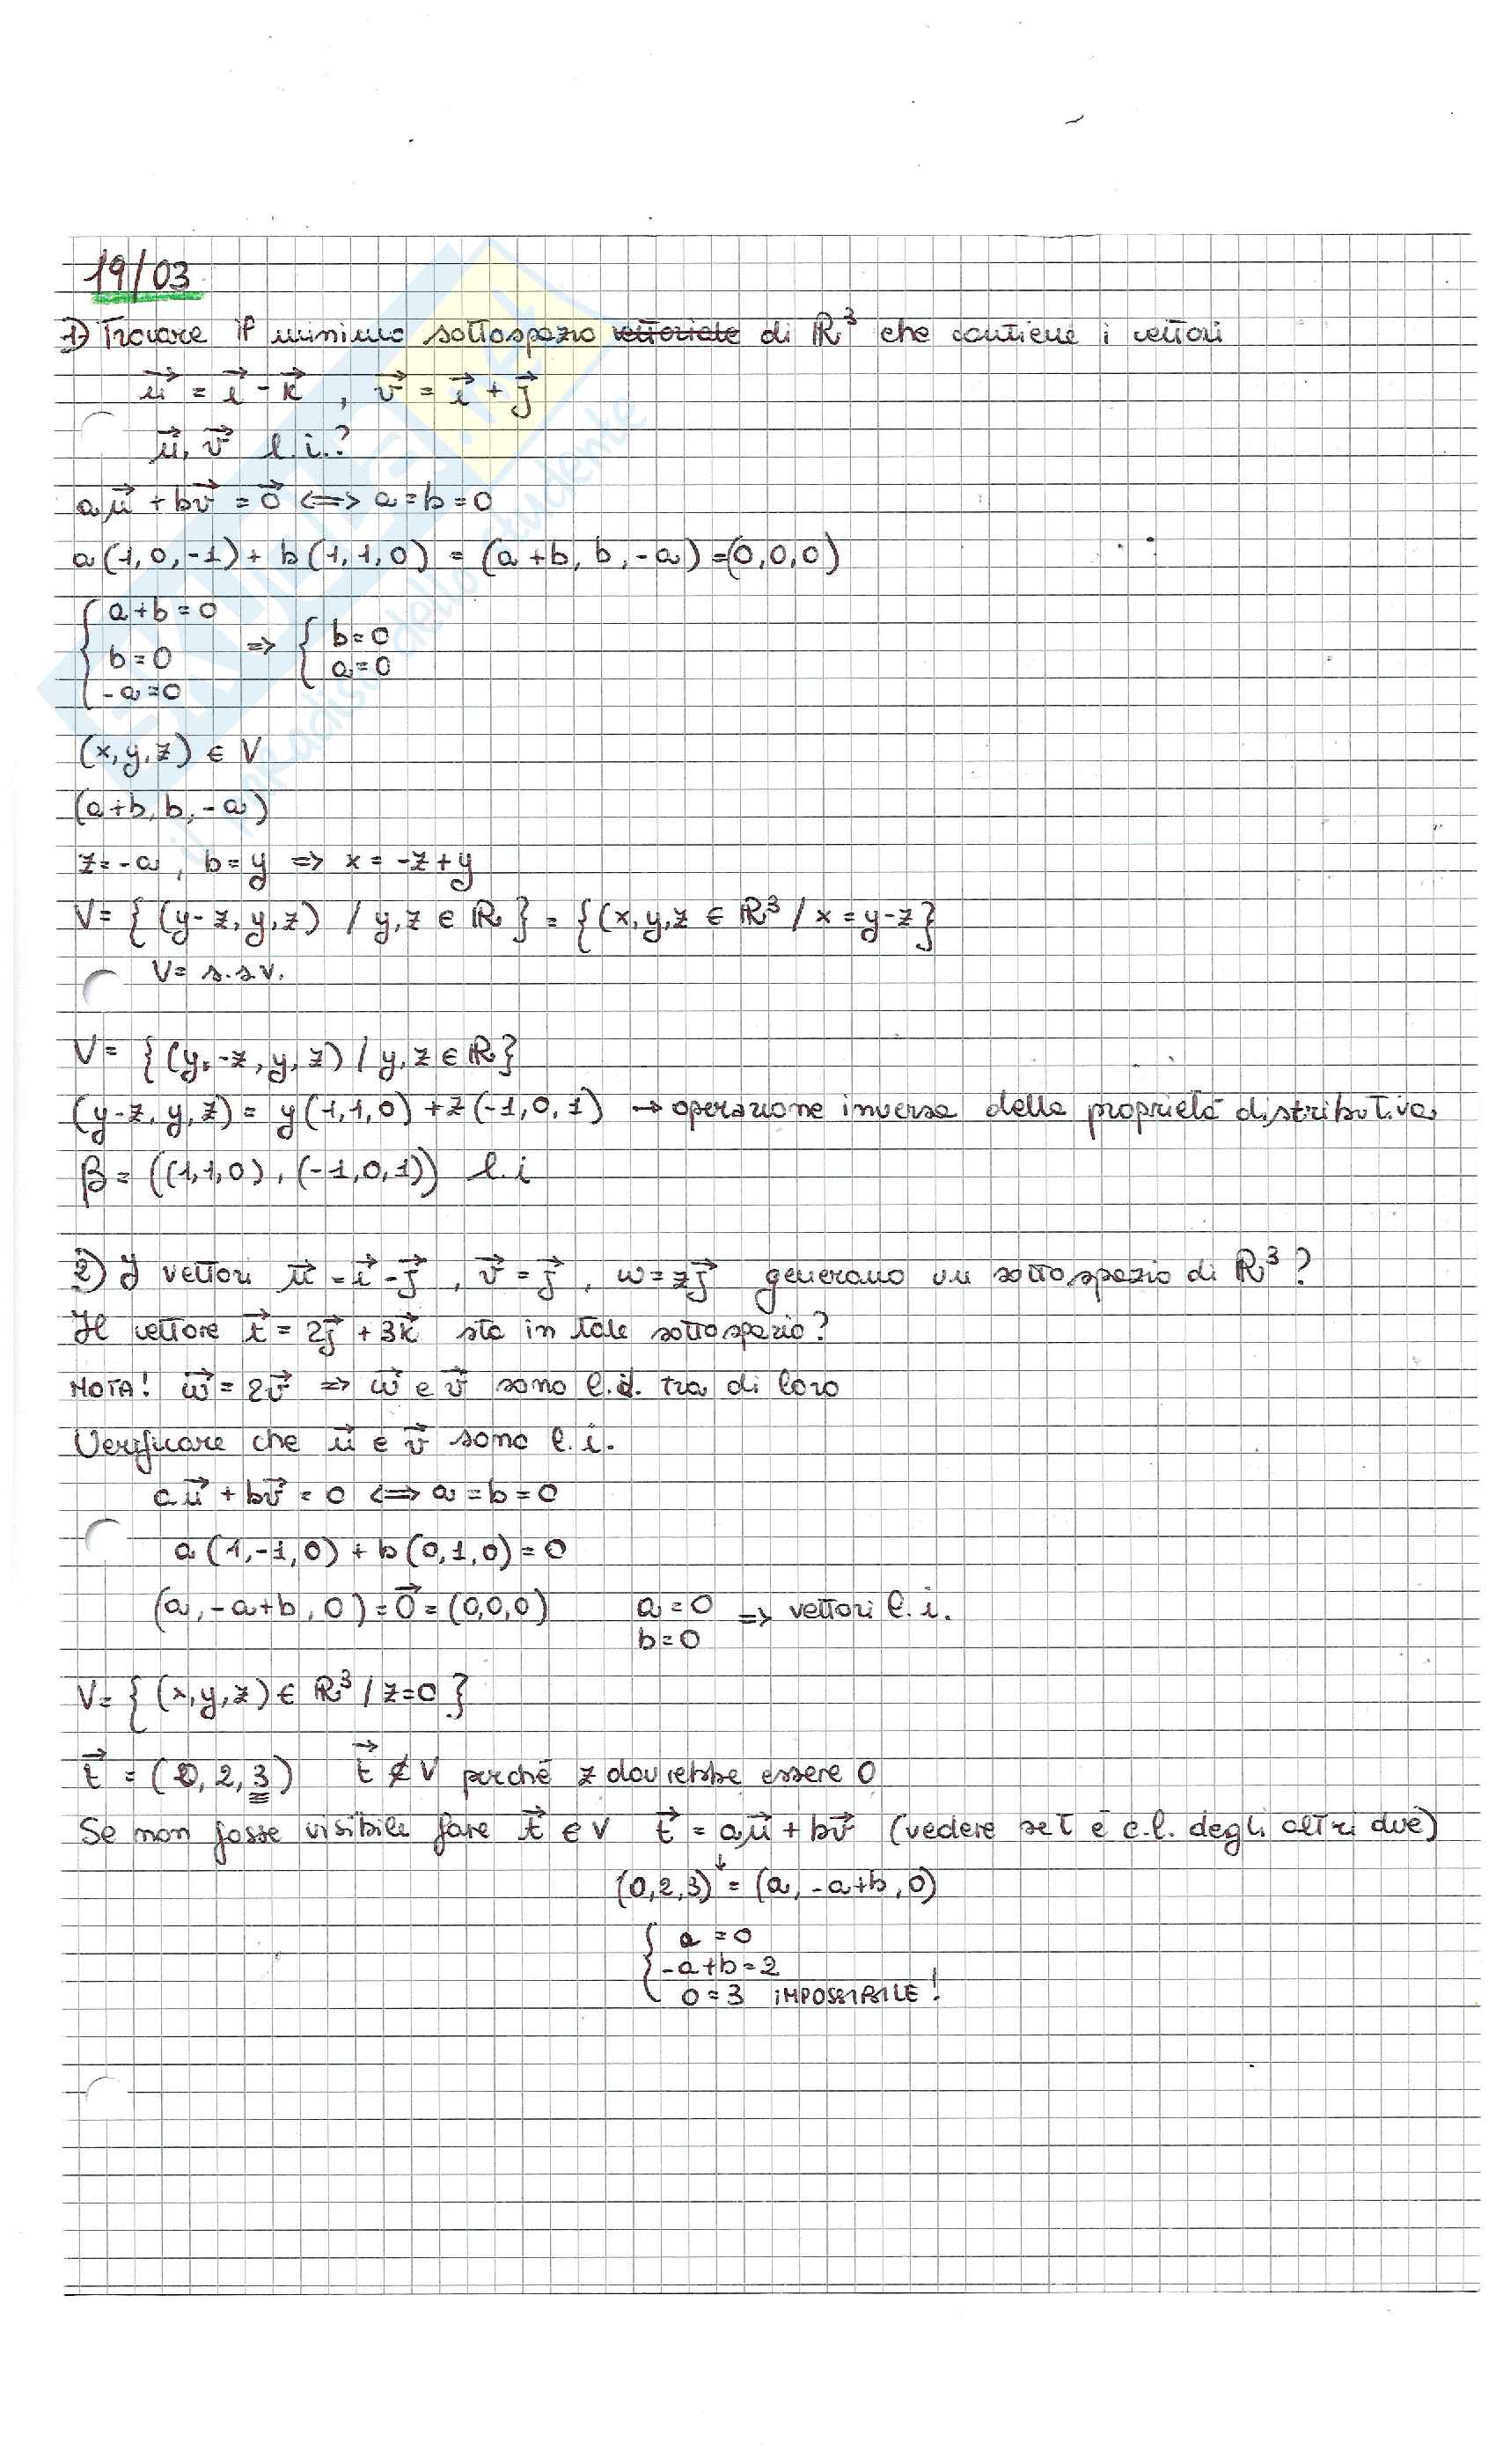 19/03
1) Trovare il minimo sottospazio vettoriale di ℝ³ che contiene i vettori
u⃗ = i⃗ - k⃗ , v⃗ = i⃗ + j⃗
u⃗, v⃗ l.i.?
au⃗ + bv⃗ = 0⃗ <=> a=b=0
a(1,0,-1) + b(1,1,0) = (a+b, b, -a) = (0,0,0)
{ a+b=0
b=0 => { b=0
-a=0 a=0
(x,y,z) ∈ V
(a+b, b, -a)
z=-a , b=y => x = -z+y
V= { (y-z, y, z) / y,z ∈ ℝ } = { (x,y,z ∈ ℝ³ / x = y-z }
V= s.s.v.
V= { (y-z, y, z) / y,z ∈ ℝ }
(y-z, y, z) = y(1,1,0) + z(-1,0,1) → operazione inversa della proprietà distributiva
β = ((1,1,0), (-1,0,1)) l.i
2) I vettori u⃗ = i⃗ - j⃗ , v⃗ = j⃗ , w = 2j⃗ generano un sottospazio di ℝ³?
Il vettore t⃗ = 2j⃗ + 3k⃗ sta in tale sottospazio?
NOTA! w⃗ = 2v⃗ => w⃗ e v⃗ sono l.d. tra di loro
Verificare che u⃗ e v⃗ sono l.i.
au⃗ + bv⃗ = 0 <=> a=b=0
a(1,-1,0) + b(0,1,0) = 0
(a, -a+b, 0) = 0⃗ = (0,0,0) a=0 => vettori l.i.
b=0
V= { (x,y,z) ∈ ℝ³ / z=0 }
t⃗ = (0,2,3) t⃗ ∉ V perché z dovrebbe essere 0
Se non fosse visibile fare t⃗ ∈ V t⃗ = au⃗ + bv⃗ (vedere se t è c.l. degli altri due)
↓
(0,2,3) = (a, -a+b, 0)
{ a = 0
-a+b=2
0=3 IMPOSSIBILE!
SKUOLA.net
il paradiso dello studente